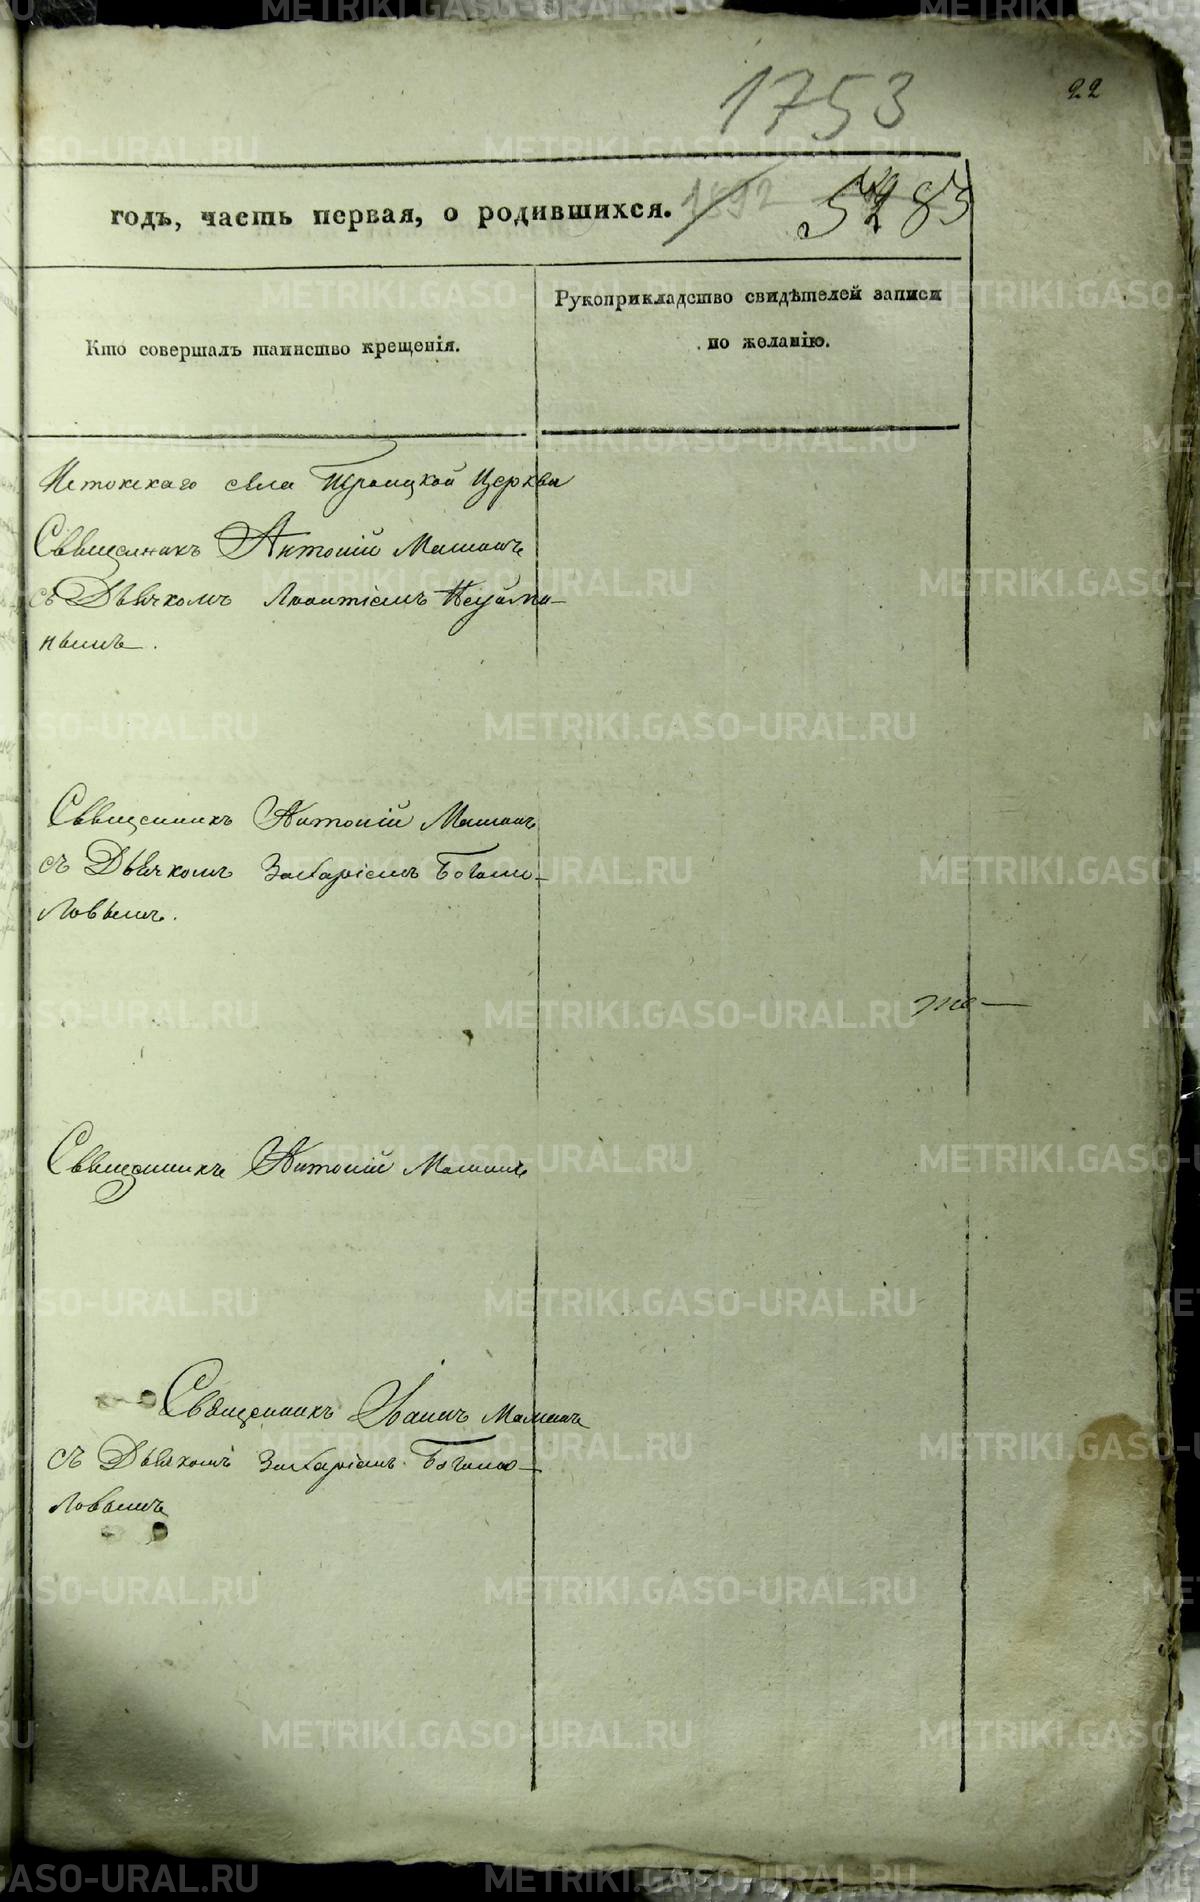 1753
22
годъ, часть первая, о родившихся. 1892 5283
Кто совершалъ таинство крещенія.
Рукоприкладство свидѣтелей записи
по желанію.
Истокскаго села Троицкой Церкви
Священникъ Антоній Маминъ
съ Дьячкомъ Леонтіемъ Неуйми-
нымъ.
Священникъ Антоній Маминъ
съ Дьячкомъ Захаріемъ Богомо-
ловымъ.
Священникъ Антоній Маминъ
Священникъ Іоаннъ Маминъ
съ Дьячкомъ Захаріемъ Богомо-
ловымъ
METRIKI.GASO-URAL.RU